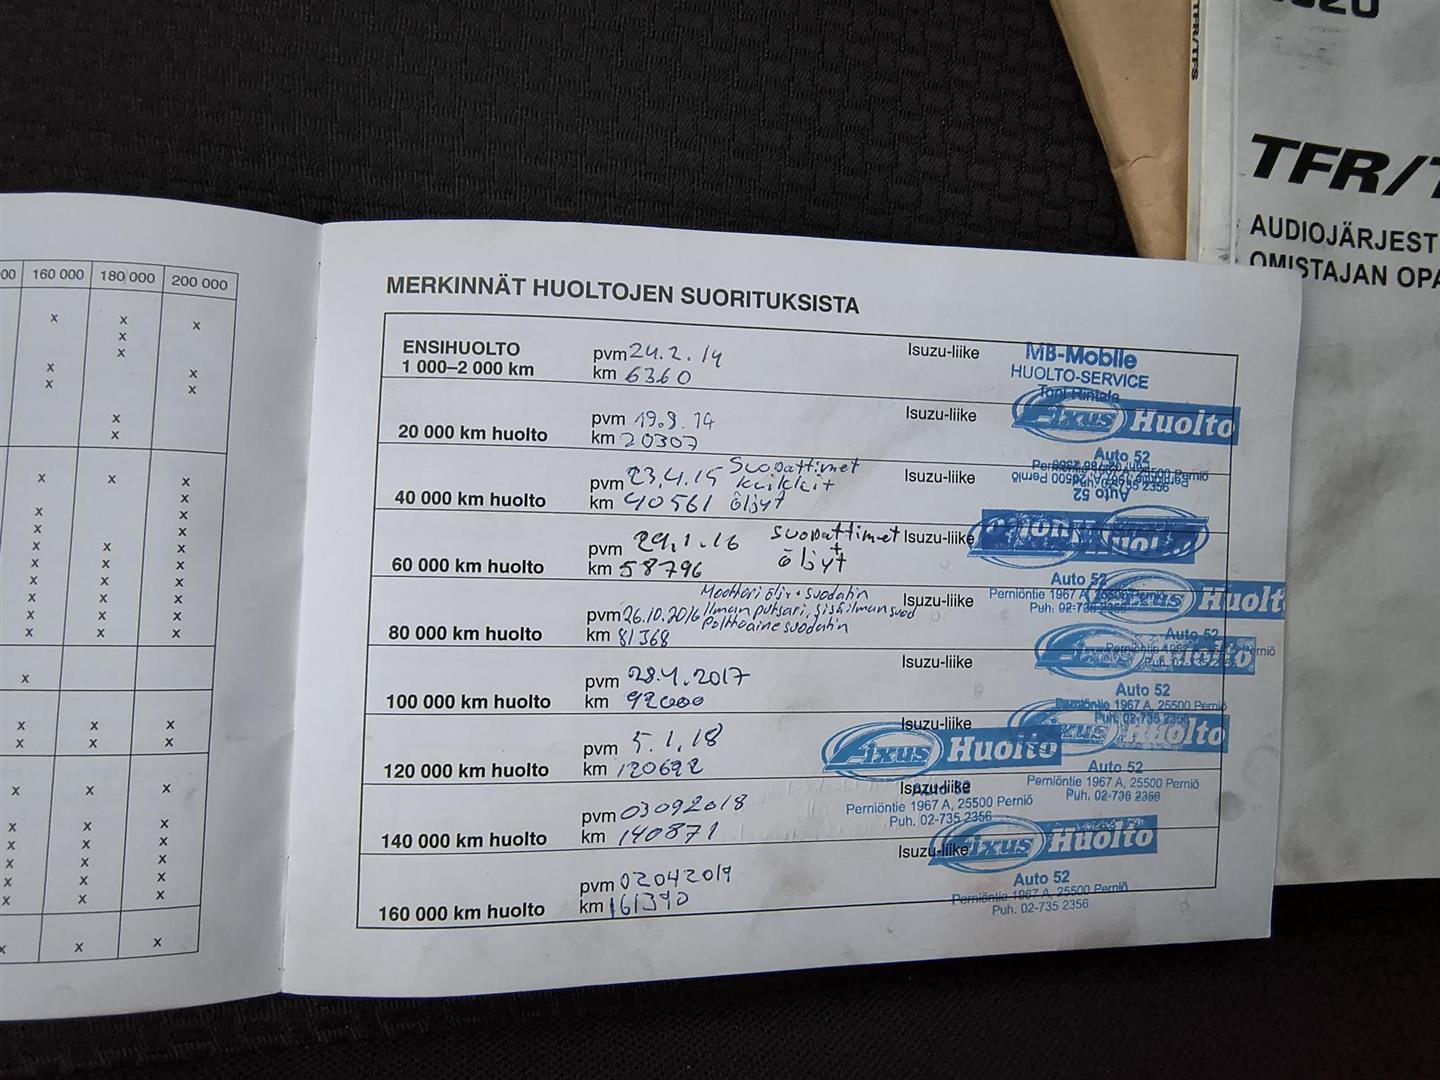 160 000 180 000 200 000
MERKINNÄT HUOLTOJEN SUORITUKSISTA
ENSIHUOLTO
1 000–2 000 km
pvm 24.2.14
km 6360
Isuzu-liike
MB-Mobile
HUOLTO-SERVICE
Toni Hintala
20 000 km huolto
pvm 19.9.14
km 20307
Isuzu-liike
Fixus Huolto
Auto 52
40 000 km huolto
pvm 23.4.15 Suodattimet
km 40561 öljyt
Isuzu-liike
Auto 52
60 000 km huolto
pvm 29.1.16 suodattimet
+
km 58796 öljyt
Isuzu-liike
Auto 52
Perniöntie 1967 A, 25500 Perniö
80 000 km huolto
Moottori öljy + suodatin
pvm 26.10.2016 Ilman puhsari, sisäilmansuod
km 81368 Polttoainesuodatin
Isuzu-liike
Fixus Huolto
Auto 52
100 000 km huolto
pvm 28.4.2017
km 92000
Isuzu-liike
Auto 52
Perniöntie 1967 A, 25500 Perniö
120 000 km huolto
pvm 5.1.18
km 120692
Isuzu-liike
Fixus Huolto
Auto 52
Perniöntie 1967 A, 25500 Perniö
Puh. 02-736 2356
140 000 km huolto
pvm 03092018
km 140871
Isuzu-liike
Fixus Huolto
Perniöntie 1967 A, 25500 Perniö
Puh. 02-735 2356
160 000 km huolto
pvm 02042019
km 161390
Isuzu-liike
Fixus Huolto
Auto 52
Perniöntie 1967 A, 25500 Perniö
Puh. 02-735 2356
TFR/TFS
TFR/T
AUDIOJÄRJEST
OMISTAJAN OPA